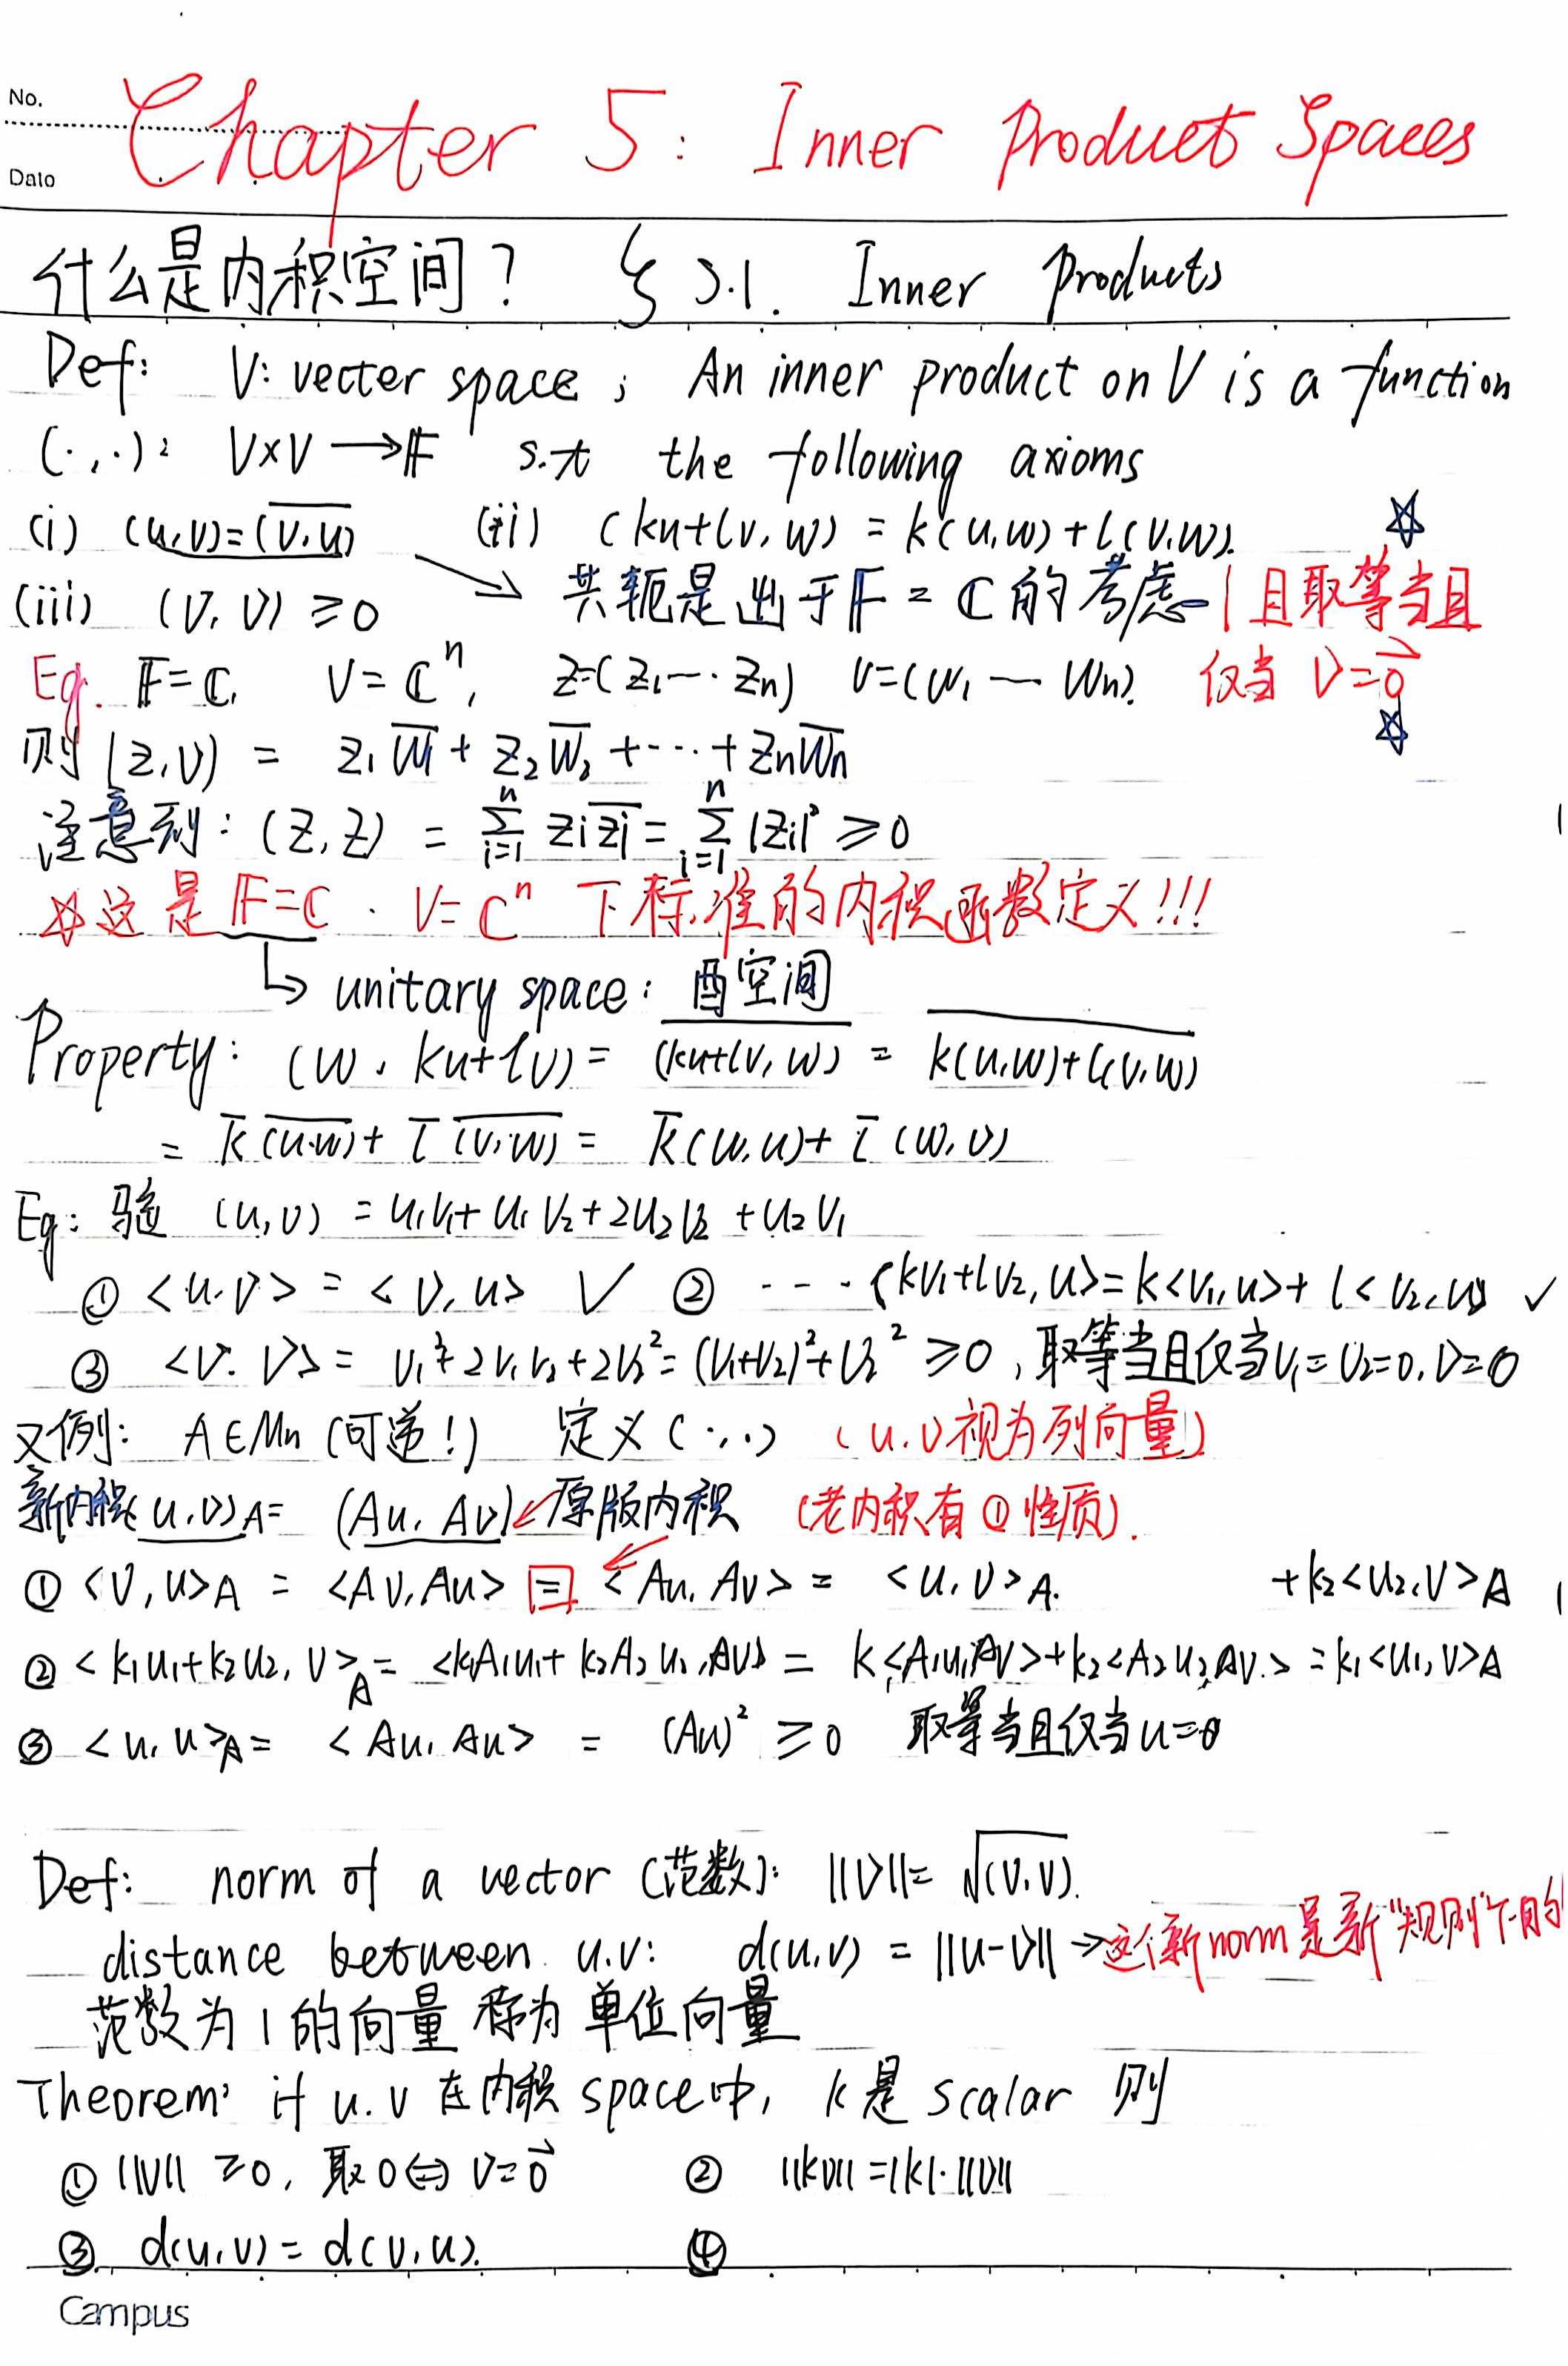 No.
Chapter 5: Inner Product Spaces
Date
什么是内积空间? § 5.1. Inner Products
Def: V: vecter space; An inner product on V is a function
(·,·): V×V→𝔽 s.t the following axioms
(i) (u,v)=\overline{(v,u)} (ii) (ku+lv, w) = k(u,w)+l(v,w). ☆
(iii) (v,v) ≥0 → 共轭是出于𝔽=ℂ的考虑 且取等当且
Eg. 𝔽=ℂ, V=ℂ^n, z=(z₁…zn) v=(w₁—wn). 仅当 v=\vec{0} ☆
则 (z,v) = z₁\overline{w₁}+z₂\overline{w₂}+⋯+zn\overline{wn}
注意到: (z,z) = \sum_{i=1}^{n} zi\overline{zi} = \sum_{i=1}^{n} |zi|² ≥0
☆这是 𝔽=ℂ. V=ℂ^n 下标准的内积函数定义!!!
↳ unitary space: 酉空间
Property: (w, ku+lv) = \overline{(ku+lv, w)} = \overline{k(u,w)+l(v,w)}
= \overline{k}\overline{(u,w)}+\overline{l}\overline{(v,w)} = \overline{k}(w,u)+\overline{l}(w,v)
Eg: 验 (u,v) = u₁v₁+u₁v₂+2u₂v₂+u₂v₁
① <u,v> = <v,u> ✓ ② ---- <kv₁+lv₂,u>=k<v₁,u>+l<v₂,u> ✓
③ <v,v> = v₁²+2v₁v₂+2v₂²=(v₁+v₂)²+v₂² ≥0, 取等当且仅当v₁=v₂=0, v=0
又例: A∈Mn (可逆!) 定义(·,·) (u,v视为列向量)
新内积<u,v>A= (Au, Av) ← 原版内积 (老内积有①性质).
① <v,u>A = <Av,Au> = <Au, Av> = <u,v>A. +k₂<u₂,v>A
② <k₁u₁+k₂u₂, v>A = <k₁A₁u₁+k₂A₂u₂,Av> = k₁<A₁u₁,Av>+k₂<A₂u₂,Av.> =k₁<u₁,v>A
③ <u,u>A = <Au, Au> = (Au)² ≥0 取等当且仅当u=0
Def: norm of a vector (范数): ||v||= \sqrt{(v,v)}.
distance between u.v: d(u,v) = ||u-v|| →这个新norm是新“规则”下的
范数为1的向量称为单位向量
Theorem: if u.v 在内积space中, k是scalar 则
① ||v|| ≥0, 取0⇔v=\vec{0} ② ||kv||=|k|·||v||
③ d(u,v) = d(v,u). ④
Campus